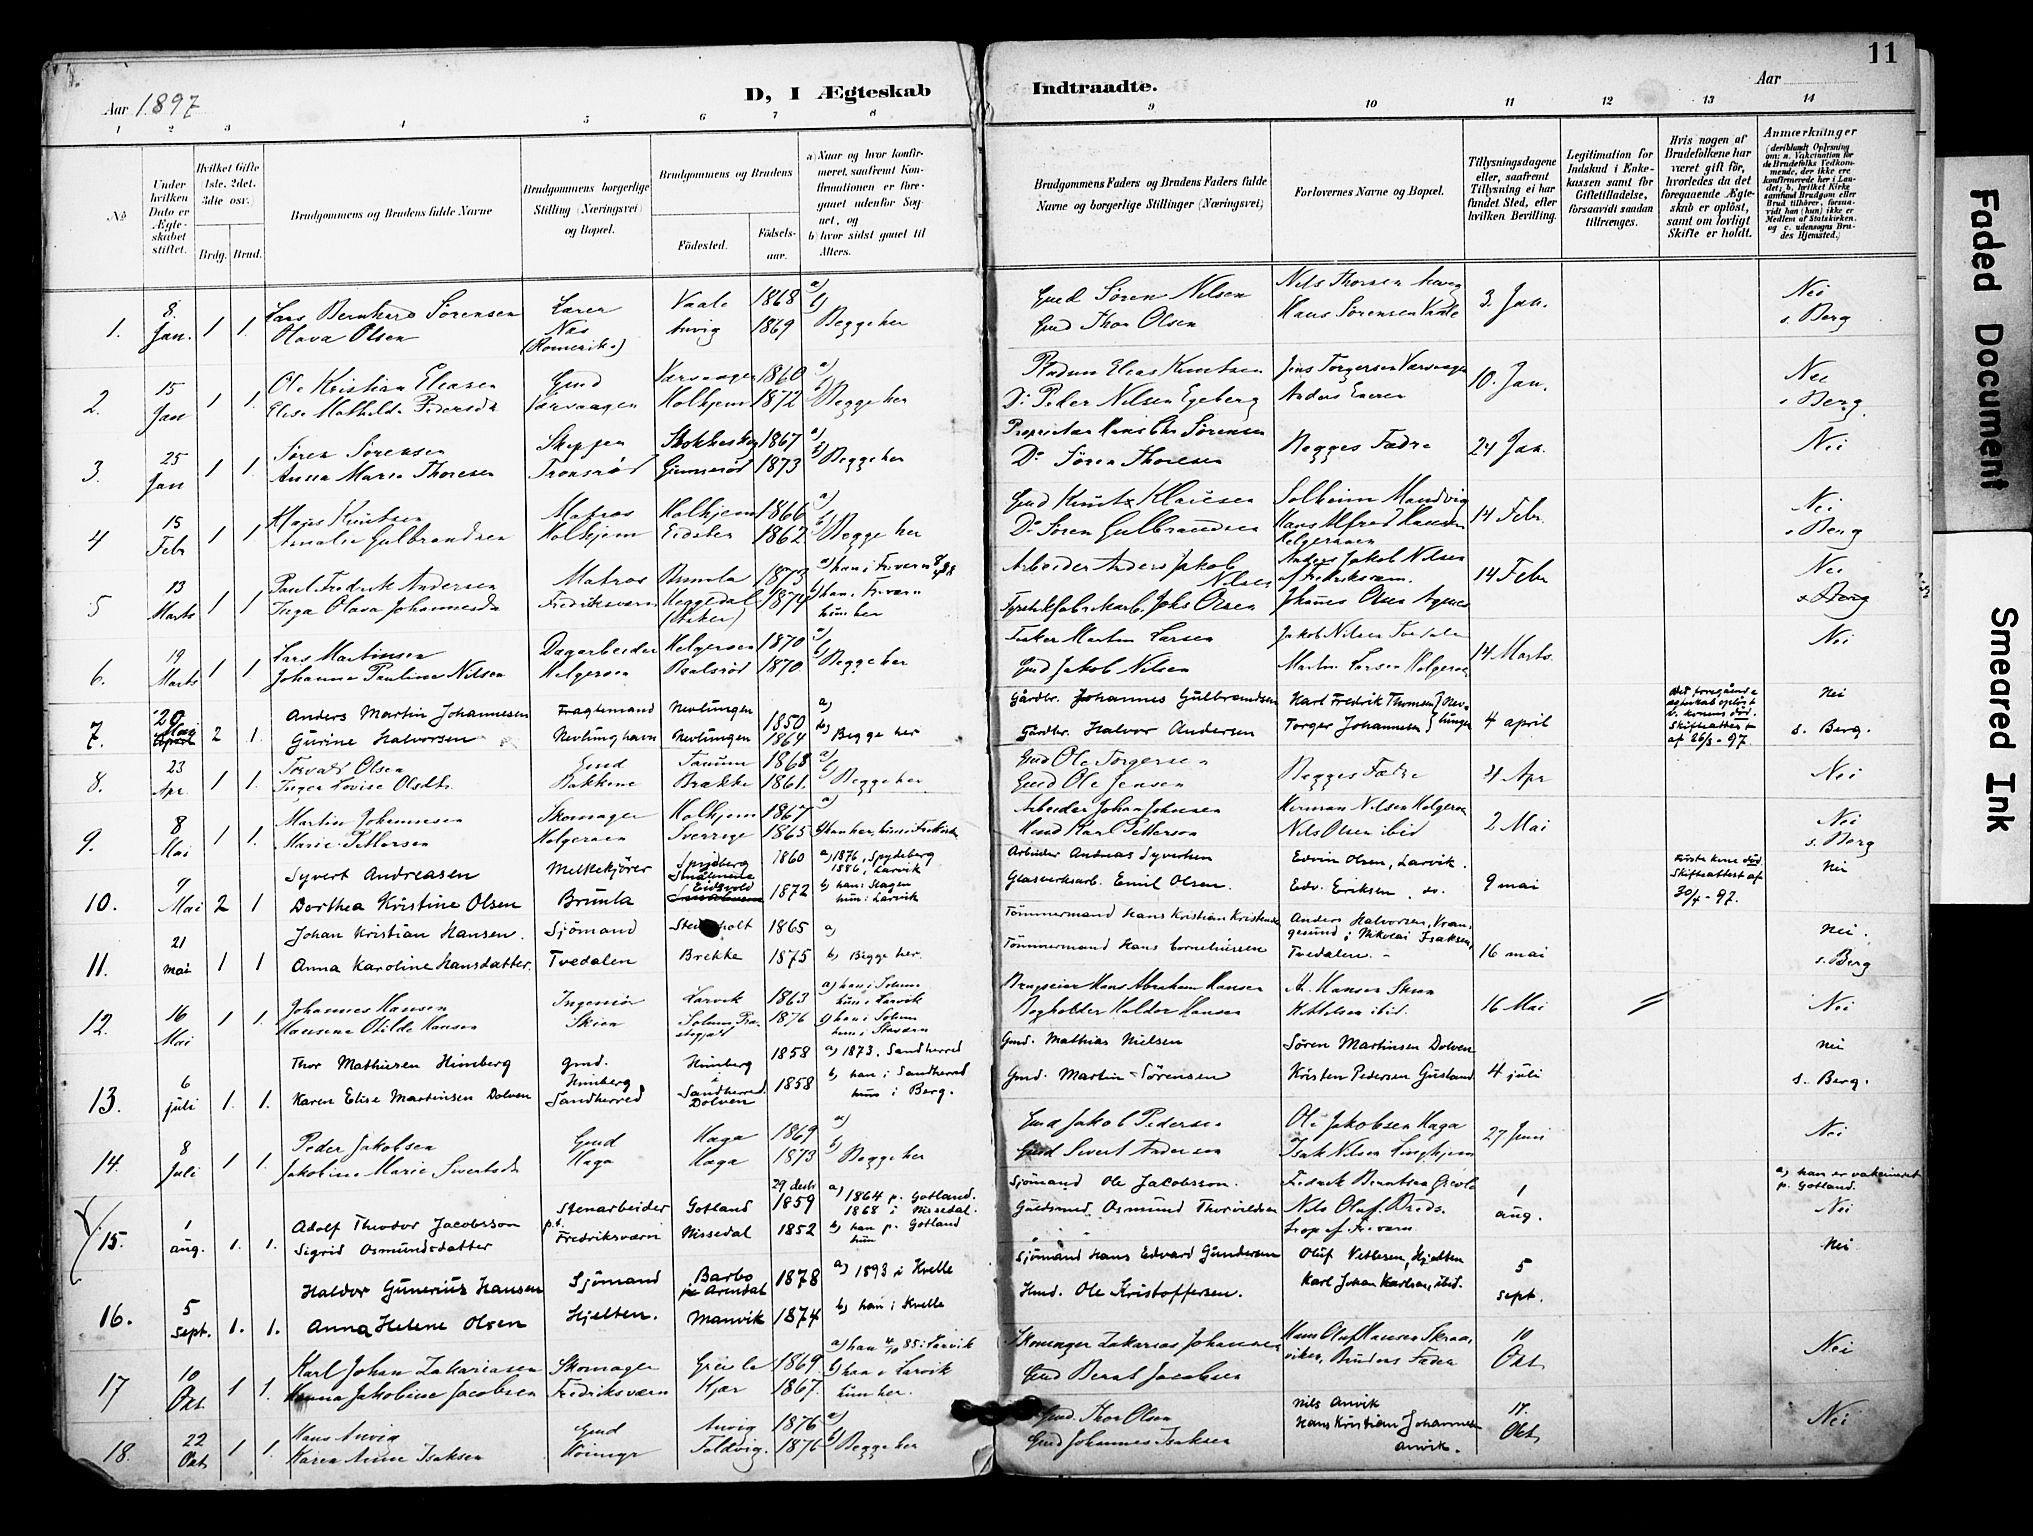 11
Aar 1897
D, I Ægteskab
Indtraadte.
Aar
1 2 3 4 5 6 7 8 9 10 11 12 13 14
No
Under hvilken Dato er Ægteskabet stiftet.
Hvilket Gifte 1ste, 2det, 3die osv.)
Brdg. Brud.
Brudgommens og Brudens fulde Navne
Brudgommens borgerlige Stilling (Næringsvei) og Bopæl.
Brudgommens og Brudens
Fødested.
Fødselsaar.
a) Naar og hvor konfirmeret, saafremt Konfirmationen er foregaaet udenfor Sognet, og
b) hvor sidst gaaet til Alters.
Brudgommens Faders og Brudens Faders fulde Navne og borgerlige Stillinger (Næringsvei)
Forlovernes Navne og Bopæl.
Tillysningsdagene eller, saafremt Tillysning ei har fundet Sted, efter hvilken Bevilling.
Legitimation for Indskud i Enkekassen samt for Giftetilladelse, forsaavidt saadan tiltrænges.
Hvis nogen af Brudefolkene har været gift før, hvorledes da det foregaaende Ægteskab er opløst, samt om lovligt Skifte er holdt.
Anmærkninger
(deriblandt Oplysning om: a. Vakcination for de Brudefolks Vedkommende, der ikke ere konfirmerede her i Landet; b. hvilket Kirkesamfund Brudgom eller Brud tilhører, forsaavidt han (hun) ikke er Medlem af Statskirken, og c. udensogns Brudes Hjemsted.)
1. 8. Jan. 1 1. Lars Bernhard Sørensen Lærer Vaale 1868 a) Gmd Søren Nilsen Nils Thorsen 3. Jan. Nei
Olava Olsen Næs (Romerike) Anvig 1869 b) Begge her Gmd Thor Olsen Hans Sørensen Vaale s. Berg
2. 15 Jan 1 1. Ole Kristian Eliasen Gmd 1860 a) Elias Knutsen Jens Torgersen 10. Jan. Nei
Elise Mathilde Pedersdr Holhjem 1872 b) Begge her Do Peder Nilsen Egeberg Anders s Berg
3. 25 Jan 1 1. Søren Sørensen Skipper Stokke 1867 a) Proprietær Hans Chr Sørensen Begges Fædre 24 Jan. Nei
Anna Marie Thoresen Tronsrød 1873 b) Begge her Do Søren Thoresen
4 15 Febr 1 1. Hans Knutsen Matros Holhjem 1866 a) Gmd Knut Klausen Solheim Manvig 14 Febr. Nei
Amalie Gulbrandsen Holhjem Eidsten 1862 b) Begge her Do Søren Gulbrandsen Hans Alfred Hansen Helgeroen s Berg
5 13 Marts 1 1 Paul Fredrik Andersen Matros Brunla 1873 a) han i Fr.værn Arbeider Anders Jakob Nilsen Anders Jakob Nilsen af Fredriksværn. 14 Febr Nei
Inga Olava Johannesdr Fredriksværn Heggedal (Asker) 1874 b) han i Fr.værn hun her Johs Olsen Johannes Olsen Agnes s Berg
6. 19 Marts 1 1 Lars Martinsen Dagarbeider Helgeroen 1870 a) Fisker Martin Larsen Jakob Nilsen Tvedalen 14 Marts. Nei
Johanne Pauline Nilsen Helgeroen 1870 b) Begge her Gmd Jakob Nilsen Martin Larsen Helgeroen
7. 20 Mai April 2 1. Anders Martin Johannesen Fragtemand Nevlungen 1850 a) Gårdbr. Johannes Gulbrandsen Karl Fredrik Thomsen } Nev- 4 april Det foregående ægteskab opløst v. konens død. Skifteattest af 26/3-97. Nei
Gurine Halvorsen Nevlunghavn Nevlungen 1864 b) Begge her Gårdbr. Halvor Andersen Torger Johannesen } lungen s. Berg.
8. 23 Apr 1 1. Torvald Olsen Gmd Tanum 1868 a) Gmd Ole Torgersen Begges Fædre 4 Apr Nei
Inger Lovise Olsdtr. Bakkene Brække 1861. b) Begge her Gmd Ole Jensen
9. 8 Mai 1 1. Martin Johannesen Skomager Holhjem 1867 a) Arbeider Johan Johnsen Herman Nilsen Helgeroa 2 Mai Nei
Marie Pettersen Helgeroen Sverrige 1865 b) han her, hun i Hmd Karl Petterson Nils Olsen ibid s. Berg
10. 9 Mai 2 1 Syvert Andreasen Melkekjører Spydberg Smålenene 1860 a) 1876, Spydeberg 1886, Larvik Arbeider Andreas Syvertsen Edvin Olsen, Larvik. 9 mai Første kone død. Skifteattest af 30/4-97. nei
Dorthea Kristine Olsen Brunla Eidsvold 1872 b) han: Slagen hun: Larvik Glasverksarb. Emil Olsen. Edv. Eriksen do.
11. 21 mai 1 1 Johan Kristian Hansen. Sjömand 1865 a) Tömmermand Hans Kristian Kristensen Anders Halvorsen, Vrangesund; Nikolai Isaksen, 16 mai nei.
Anna Karoline Hansdatter. Tvedalen Brekke 1875 b) Begge her. Tömmermand Hans Corneliussen Tvedalen. s. Berg
12. 16 Mai 1 1. Johannes Hansen Ingeniør Larvik 1863 a) han i Solum hun i Larvik Hans Abraham Hansen A. Hansen 16 Mai Nei
Hansene Otilde Hansen Skien Solum 1876 b) han i Solum hun i Staværn Bogholder Haldor Hansen ibid.
13. 6 juli 1. 1. Thor Mathisen Himberg gmd. Himberg i 1858 a) 1873. Sandherred Gmd. Mathias Nielsen Sören Martinsen Dolven 4 juli nei
Karen Elise Martinsen Dolven Himberg, Sandherred Sandherred Dolven 1858 b) han i Sandherred hun i Berg. Gmd. Martin Sörensen Kristen Pedersen Gusland s. Berg.
14. 8 Juli 1 1. Peder Jakobsen Gmd Haga 1869 a) Gmd Jakob Pedersen Ole Jakobsen Haga 27 Juni Nei
Jakobine Marie Sivertsdr Haga Haga 1873 b) Begge her Gmd Sivert Andersen Isak Nilsen
15. 1 aug. 1. 1. Adolf Theodor Jacobsson Stenarbeider Gotland 29 decb 1859 a) 1864 p. Gotland. 1868 i Nissedal. Sjömand Ole Jacobsson. Fredrik Berntsen 1 aug. a) han er vakcineret p. Gotland. Nei
Sigrid Osmundsdatter p.t. Fredriksværn Nissedal 1852 b) han p. Gotland hun Gårdsmd. Osmund Thorvildsen Nils Oluf
16. 5 sept. 1. 1. Haldor Gunerius Hansen Sjömand Barbo Arendal 1878 a) 1893 i Kvelle Sjömand Hans Edvard Gundersen Oluf Vettesen, Hjelten 5 sept. Nei
Anna Helene Olsen Hjelten. Manvik 1874 b) han i Kvelle Hmd. Ole Kristoffersen. Karl Johan Karlsen, ibid.
17 10 Okt. 1 1. Karl Johan Zakariasen Skomager 1869 a) han 85 i Larvik Skomager Zakarias Johansen Hans Oluf Hansen 10 Okt Nei
Hanna Jakobine Jacobsen Fredriksværn Kjær 1867. b) han i Larvik hun her. Gmd Bernt Jacobsen Brudens Fader
18. 22 Okt 1 1. Hans Anvig Gmd Anvig 1876 a) Gmd. Thor Olsen Nils Anvik 17. Okt. Nei
Karen Anne Isaksen 1876 b) Begge her Gmd Johannes Isaksen Hans Kristian Johannesen Anvik.
Faded Document
Smeared Ink